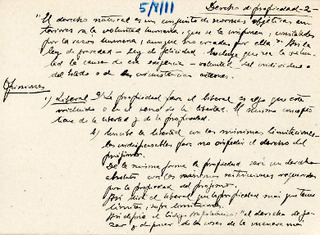 5/VIII
Derecho de propiedad - 2 -
"El derecho natural es un conjunto de normas objetivas, an-
teriores a la voluntad humana, que se le imponen,
por la razón humana, aunque no creadas por ella". Así la
ley de gravedad - Ley de felicidad. Excluye que sea la volun-
tad la causa de esa exigencia - voluntad del individuo o
del Estado o de las circunstancias externas.
Opiniones
1) Liberal. La propiedad para el liberal es algo que está
vinculado a en el concepto de la libertad. El mismo concepto
tiene de la libertad y de la propiedad.
la libertad con las mínimas limitaciones,
las indispensables para no impedir el derecho del
prójimo.
De la misma forma la propiedad será un derecho
absoluto con las mínimas restricciones requeridas
por la propiedad del prójimo.
Así dirá el liberal que la propiedad más que tener
límites, sufre limitaciones.
Así definía el Código Napoleónico: "el derecho de go-
zar y disponer de las cosas de la manera más